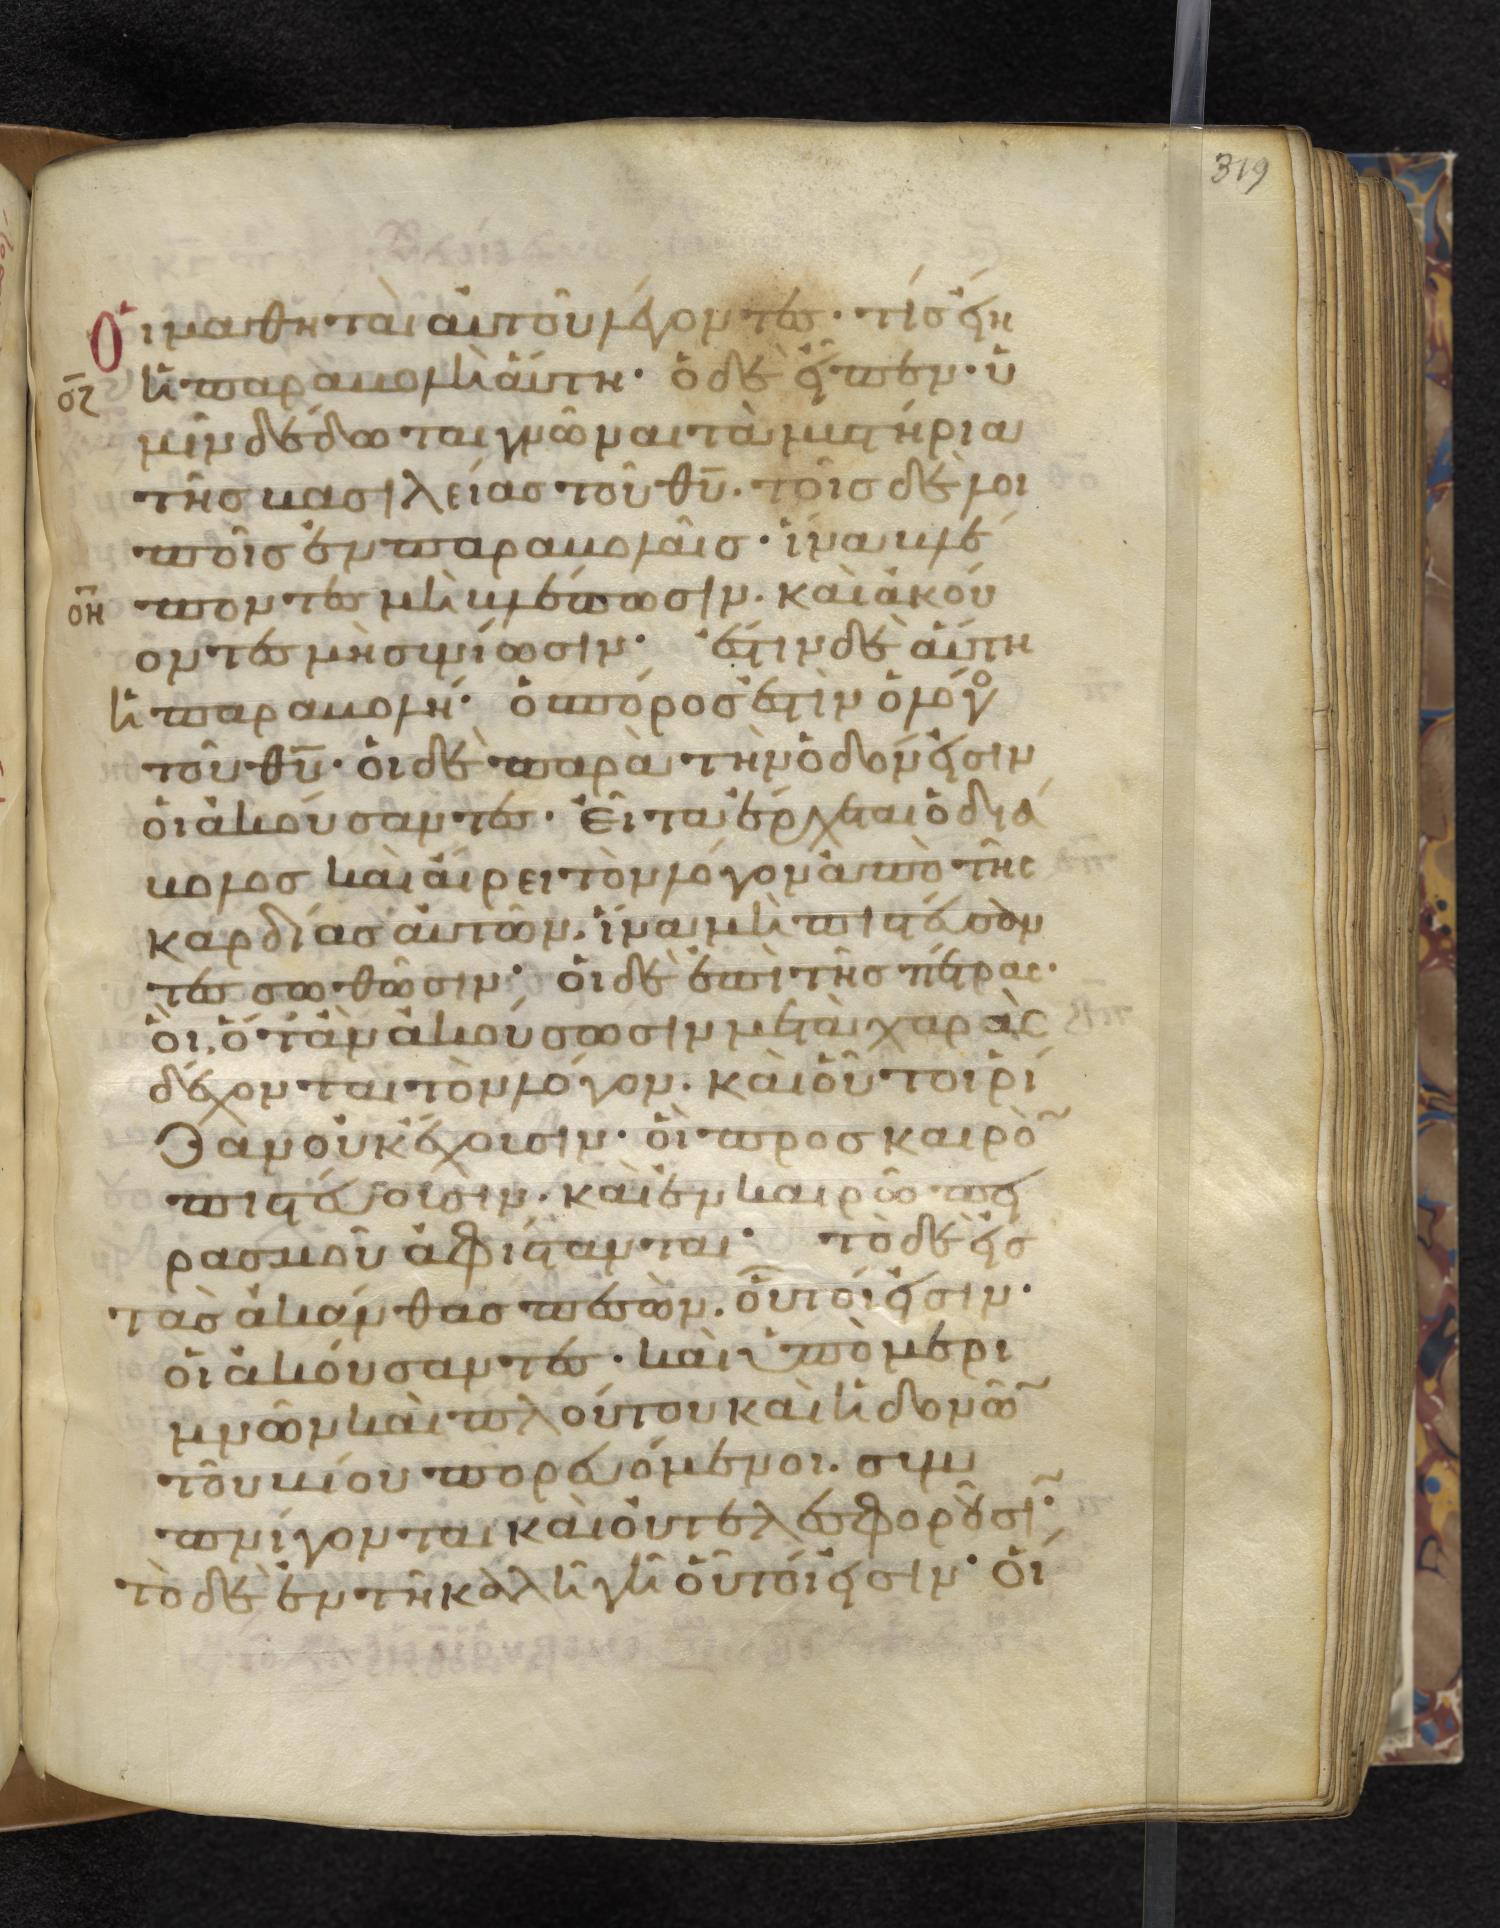 319
Οἱ μαθηταὶ αὐτοῦ λέγοντες· τίς εἴη
ἡ παραβολὴ αὕτη· ὁ δὲ εἶπεν· ὑ
μῖν δέδωται γνῶναι τὰ μυστήρια
τῆς βασιλείας τοῦ θῡ. τοῖς δὲ λοι
ποῖς ἐν παραβολαῖς· ἵνα βλέ
ποντες μὴ βλέπωσιν. καὶ ἀκού
οντες μὴ συνίωσιν· ἔστιν δὲ αὕτη
ἡ παραβολή· ὁ σπόρος ἐστὶν ὁ λόγο
τοῦ θῡ· οἱ δὲ παρὰ τὴν ὁδόν εἰσιν
οἱ ἀκούσαντες· εἶτα ἔρχεται ὁ διά
βολος καὶ αἴρει τὸν λόγον ἀπὸ τῆς
καρδίας αὐτῶν. ἵνα μὴ πιστεύσαν
τες σωθῶσιν· οἱ δὲ ἐπὶ τῆς πέτρας·
οἳ, ὅταν ἀκούσωσιν μετὰ χαρᾶς
δέχονται τὸν λόγον. καὶ οὗτοι ῥί
ζαν οὐκ ἔχουσιν· οἳ προς καιρὸ̃
πιστεύουσιν. καὶ ἐν καιρῶ πει
ρασμοῦ ἀφίστανται· τὸ δὲ εἰς
τὰς ἀκάνθας πεσὼν. οὗτοί εἰσιν·
οἱ ἀκούσαντες· καὶ ὑπὸ μερι
μνῶν καὶ πλούτου καὶ ἡδονῶ̃
τοῦ βίου πορευόμενοι. συμ
πνίγονται καὶ οὐ τελεσφοροῦσῖ·
τὸ δὲ ἐν τῆ καλῆ γῆ οὗτοί εἰσιν· οἵ
ος̄
οη̄